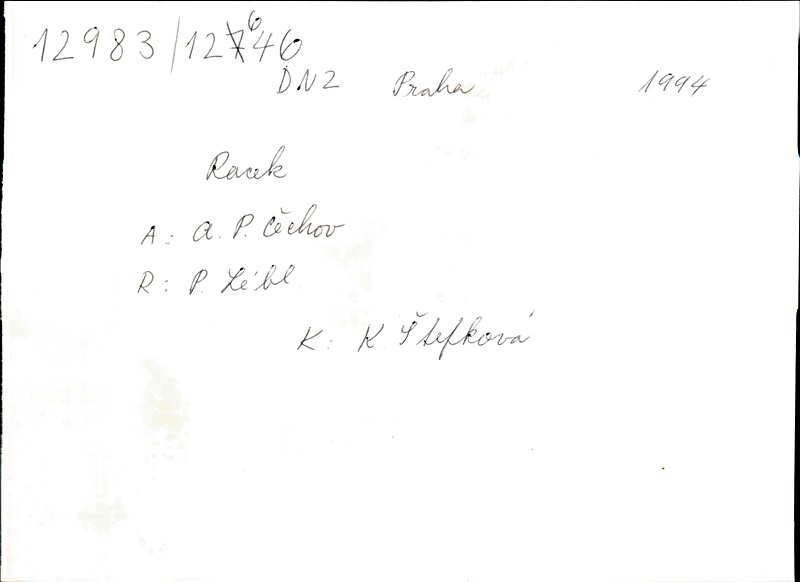 12983/12646
DNZ Praha 1994
Racek
A: A. P. Čechov
R: P. Lébl
K: K Štefková